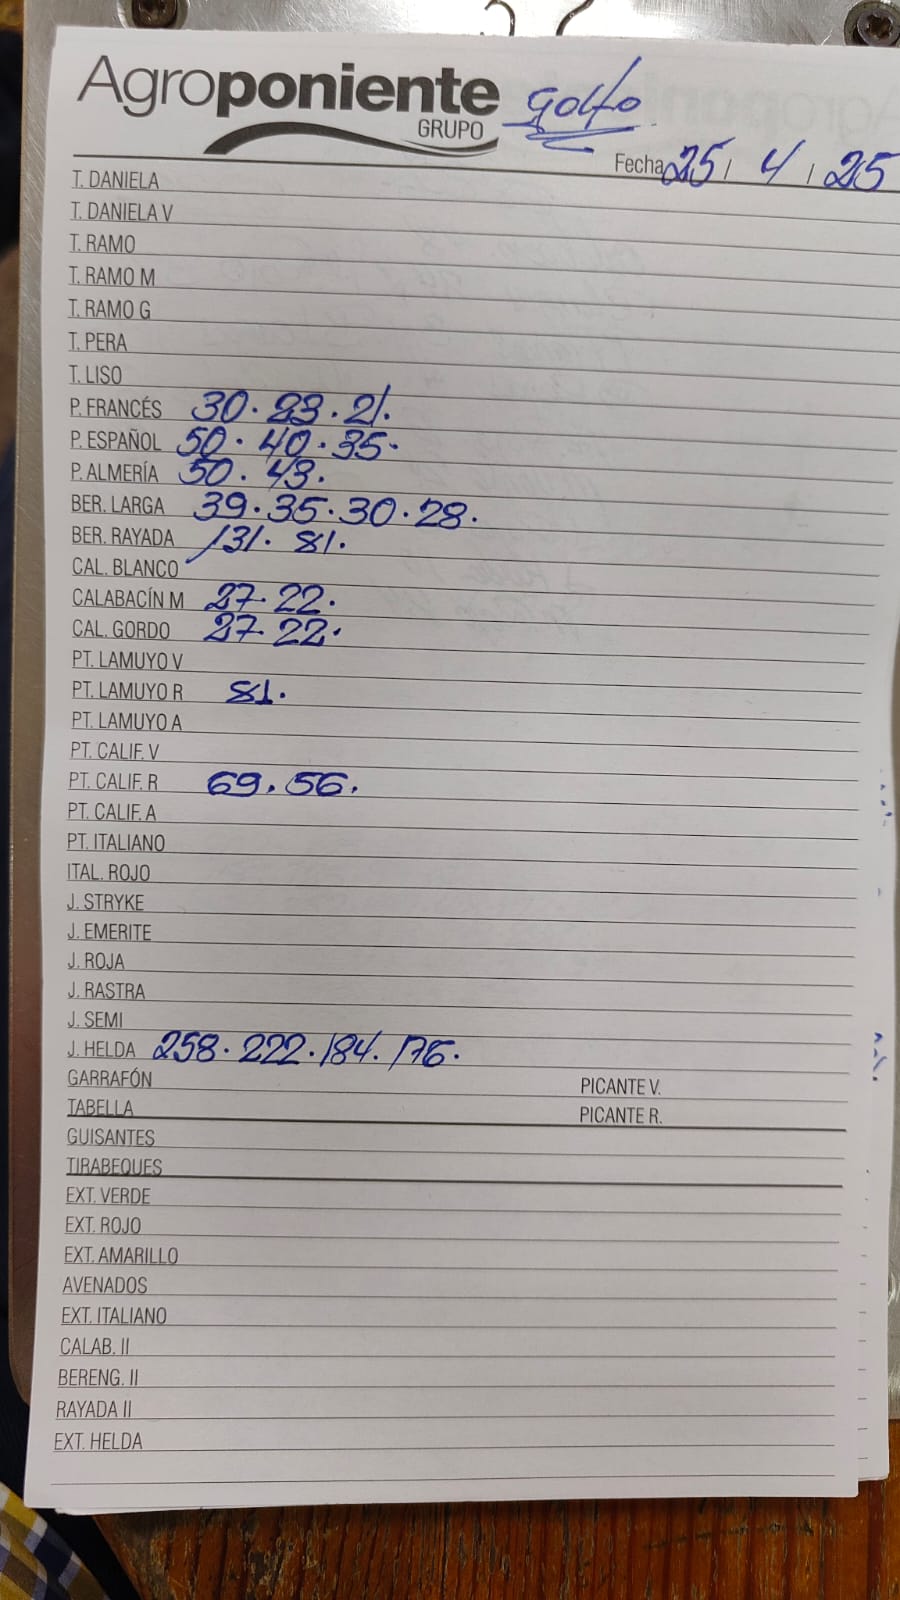 Agroponiente
GRUPO
Golfo
Fecha 25 / 4 / 25
T. DANIELA
T. DANIELA V
T. RAMO
T. RAMO M
T. RAMO G
T. PERA
T. LISO
P. FRANCÉS 30. 23. 21.
P. ESPAÑOL 50. 40. 35.
P. ALMERÍA 50. 43.
BER. LARGA 39. 35. 30. 28.
BER. RAYADA 131. 81.
CAL. BLANCO
CALABACÍN M 27. 22.
CAL. GORDO 27. 22.
PT. LAMUYO V
PT. LAMUYO R 81.
PT. LAMUYO A
PT. CALIF. V
PT. CALIF. R 69. 56.
PT. CALIF. A
PT. ITALIANO
ITAL. ROJO
J. STRYKE
J. EMERITE
J. ROJA
J. RASTRA
J. SEMI
J. HELDA 258. 222. 184. 176.
GARRAFÓN PICANTE V.
TABELLA PICANTE R.
GUISANTES
TIRABEQUES
EXT. VERDE
EXT. ROJO
EXT. AMARILLO
AVENADOS
EXT. ITALIANO
CALAB. II
BERENG. II
RAYADA II
EXT. HELDA